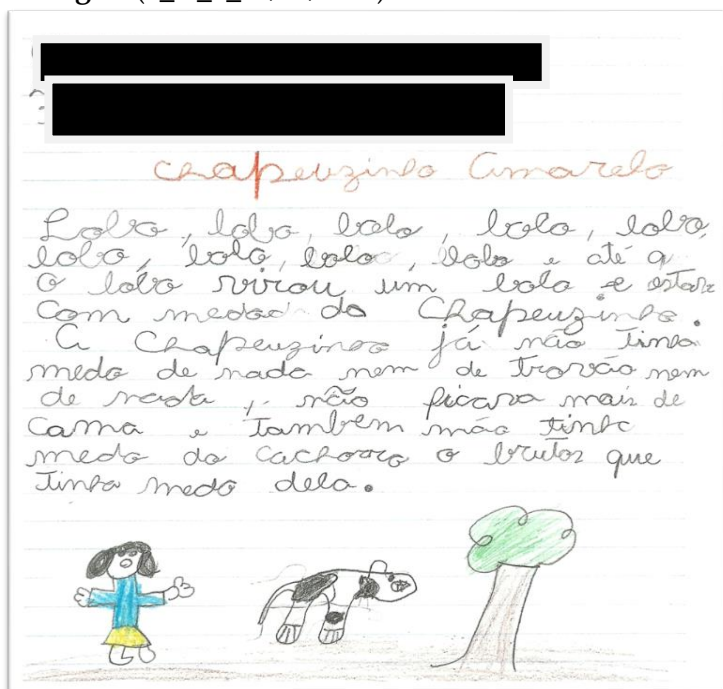 Chapeuzinho Amarelo
Lobo, lobo, bolo, bolo, lobo,
lobo, bolo, bolo, bolo e até q
O lobo virou um bolo e estav
com medo do Chapeuzinho.
A Chapeuzinho já não tinha
medo de nada nem de trovão nem
de nada, não ficava mais de
cama e também não tinha
medo do cachorro o brutos que
tinha medo dela.